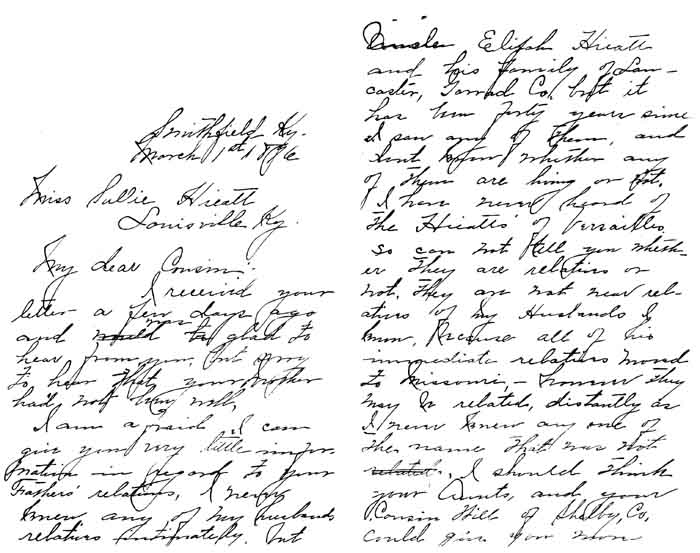 Smithfield Ky.
March 1st 1896
Miss Sallie Hieatt
Louisville Ky.
My dear Cousin:
I received your
letter a few days ago
and was glad to
hear from you, but sorry
to hear that your mother
had not been well,
I am afraid I can
give you very little infor-
mation in regard to your
Father's relatives, I never
knew any of my husbands
relatives intimately, but
Uncle Elijah Hieatt
and his family of Lan-
caster, Garrad Co. but it
has been forty years since
I saw any of them, and
dont know whether any
of them are living or not.
I have never heard of
the Hieatts of Versailles
so can not tell you wheth-
er they are relatives or
not. They are not near rel-
atives of my Husbands I
know, Because all of his
immediate relatives moved
to Missouri, - however they
may be related, distantly as
I never knew any one of
the name that was not
related. I should think
your Aunts, and your
Cousin Will of Shelby, Co.
could give you more